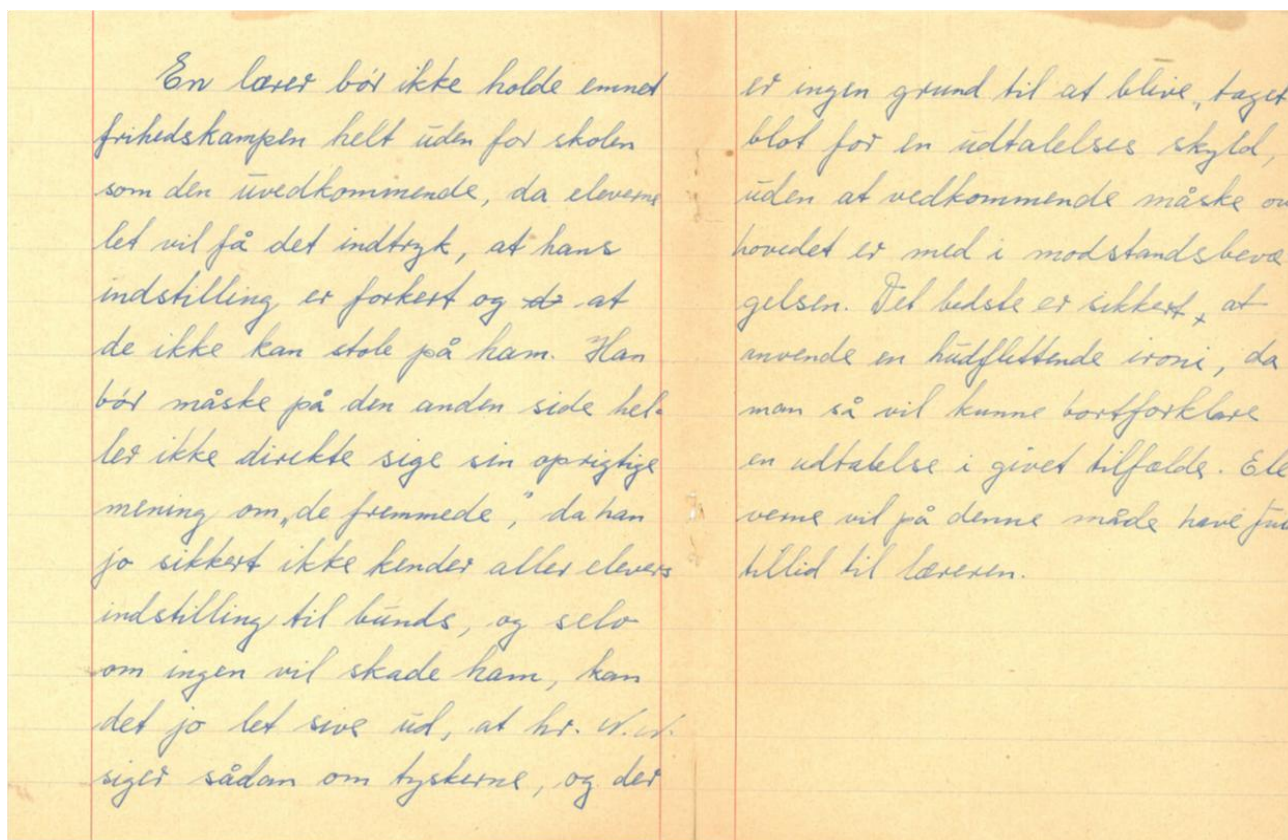 En lærer bør ikke holde emnet
frihedskampen helt uden for skolen
som den uvedkommende, da eleverne
let vil få det indtryk, at hans
indstilling er forkert og at
de ikke kan stole på ham. Han
bør måske på den anden side hel-
ler ikke direkte sige sin oprigtige
mening om „de fremmede”, da han
jo sikkert ikke kender aller elevers
indstilling til bunds, og selv
om ingen vil skade ham, kan
det jo let sive ud, at hr. N.N.
siger sådan om tyskerne, og der
er ingen grund til at blive „taget
blot for en udtalelses skyld,
uden at vedkommende måske ov
hovedet er med i modstandsbevæ
gelsen. Det bedste er sikkert, at
anvende en hudflettende ironi, da
man så vil kunne bortforklare
en udtalelse i givet tilfælde. Ele
verne vil på denne måde have
tillid til læreren.